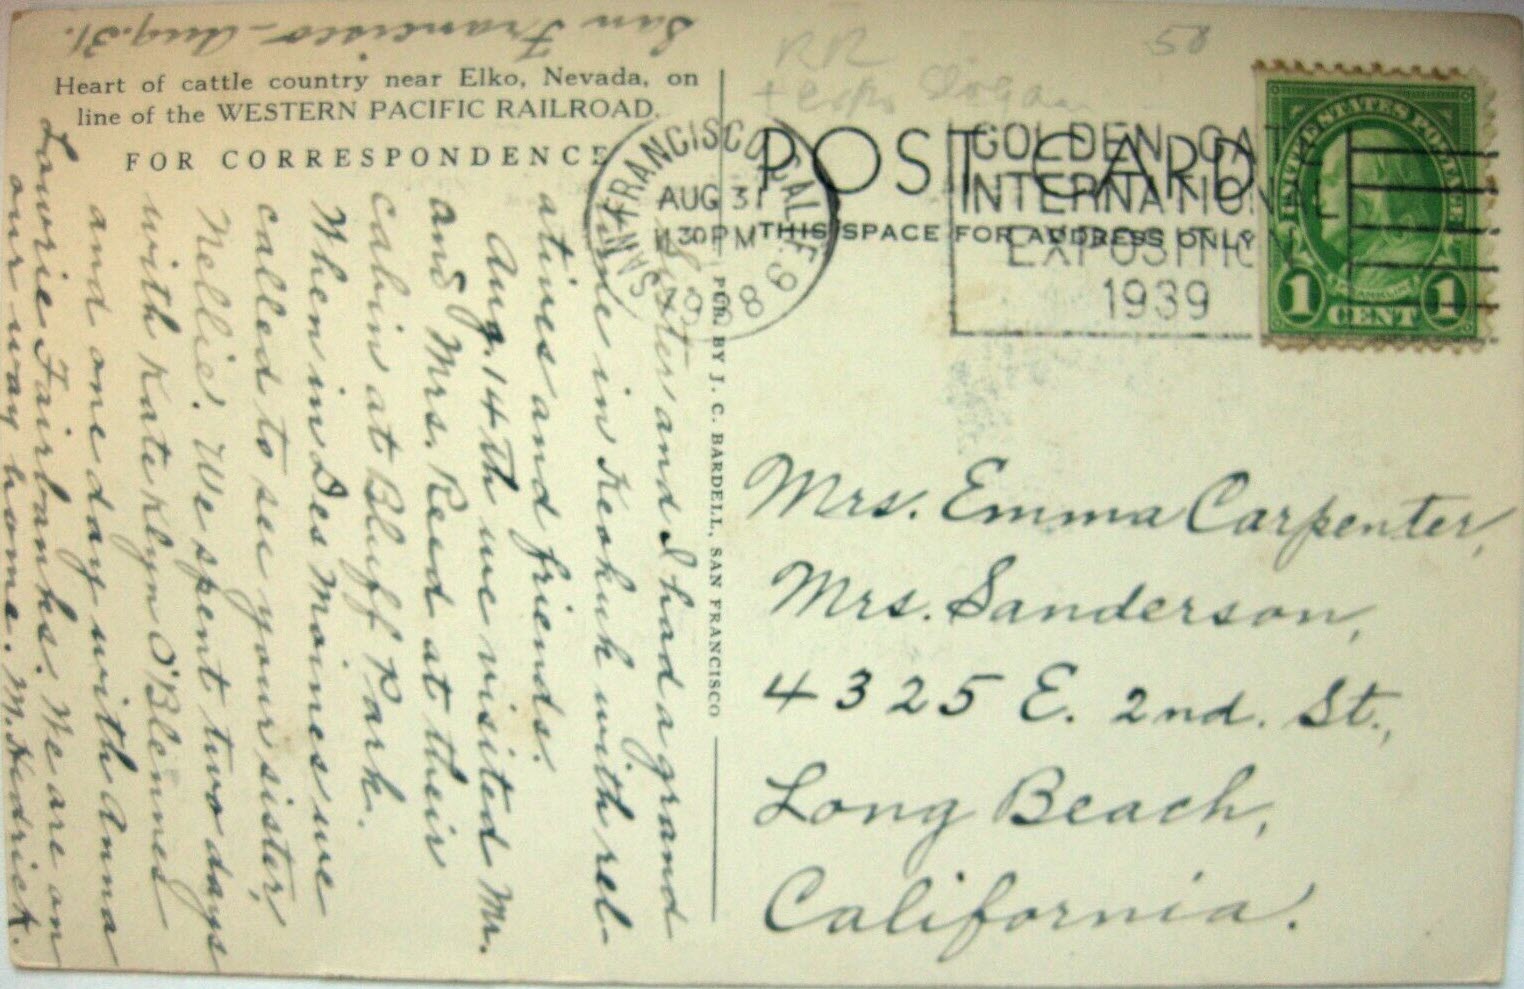 San Francisco - Aug. 31.
Heart of cattle country near Elko, Nevada, on
line of the WESTERN PACIFIC RAILROAD.
FOR CORRESPONDENCE
Sister and I had a grand
time in Keokuk with rel-
atives and friends.
Aug. 14th we visited Mr.
and Mrs. Reed at their
cabin at Bluff Park.
When in Des Moines we
called to see your sister,
Nellie. We spent two days
with Kate Klym O'Blennes
and one day with Anna
Lowrie Fairbanks. We are on
our way home. M. Hedrick.
PUB. BY J. C. BARDELL, SAN FRANCISCO
RR
+ expo slogan
50
POST CARD
THIS SPACE FOR ADDRESS ONLY
SAN FRANCISCO, CALIF. 9
AUG 31
1130 PM
1938
GOLDEN GATE
INTERNATIONAL
EXPOSITION
1939
UNITED STATES POSTAGE
FRANKLIN
1 CENT 1
Mrs. Emma Carpenter,
Mrs. Sanderson,
4325 E. 2nd. St.,
Long Beach,
California.